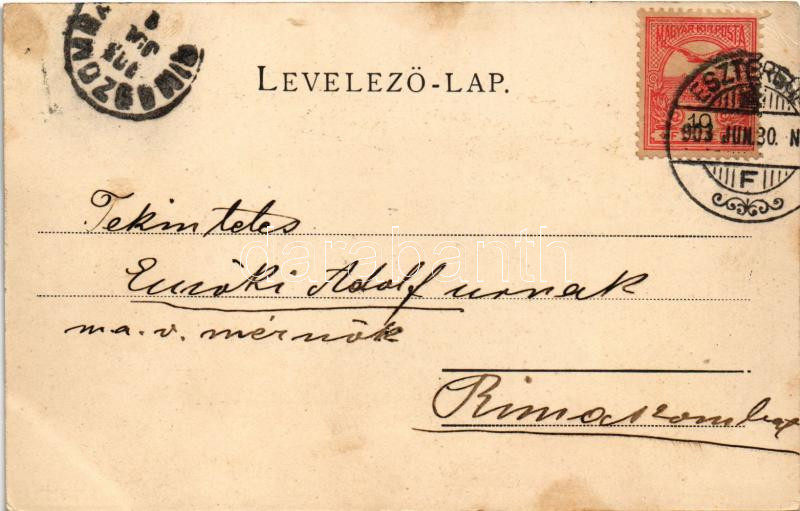 RIMASZOMBA
903
LEVELEZŐ-LAP.
MAGYAR KIR. POSTA
10
ESZTERGO
903 JUN. 30. N
F
Tekintetes
Adolf urnak
m.a.v. mérnök
Rimaszombat
darabanth